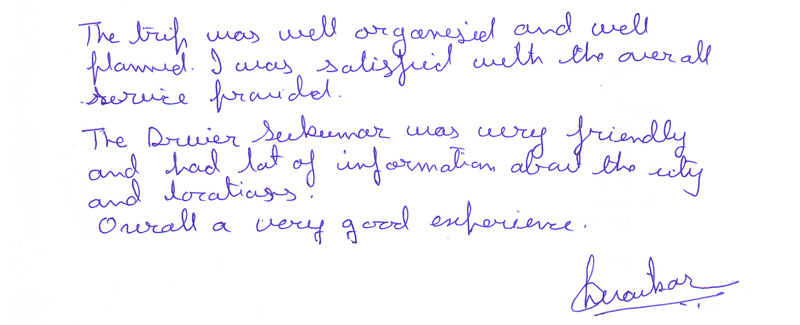 The trip was well organesid and well
planned. I was satisfied with the overall
service provided.
The Driver was very friendly
and had lot of information about the city
and locations.
Overall a very good experience.